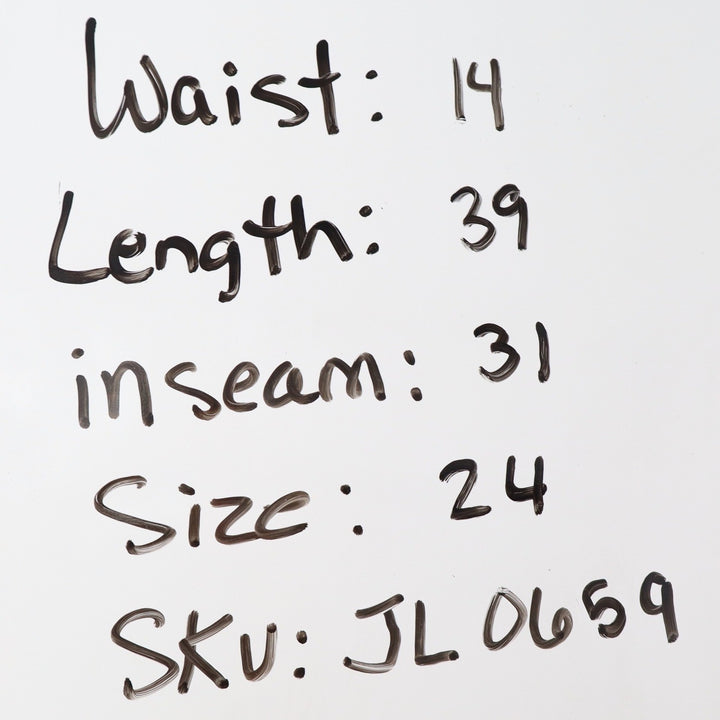 Waist: 14
Length: 39
inseam: 31
Size: 24
SKU: JL0659